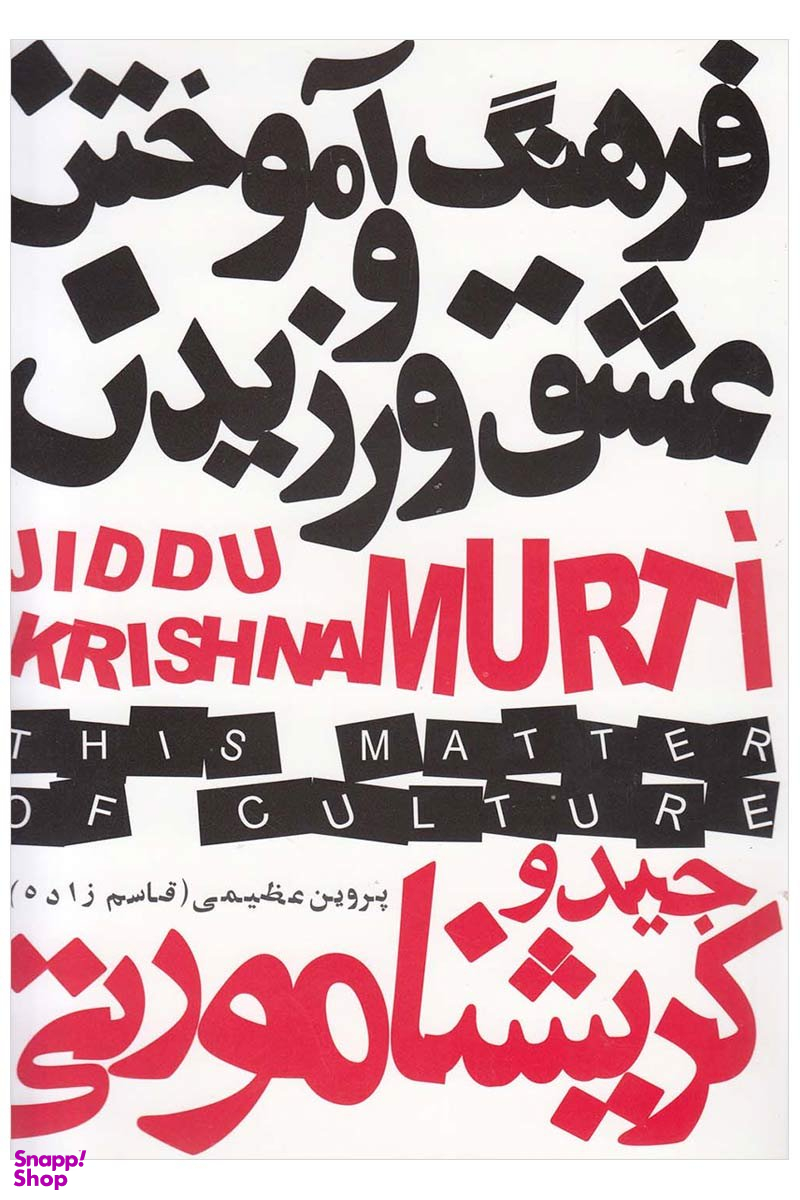 فرهنگ آموختن
و
عشق ورزیدن
JIDDU
KRISHNAMURTI
THIS MATTER
OF CULTURE
جیدو
پروین عظیمی (قاسم زاده)
کریشنا مورتی
Snapp!
Shop